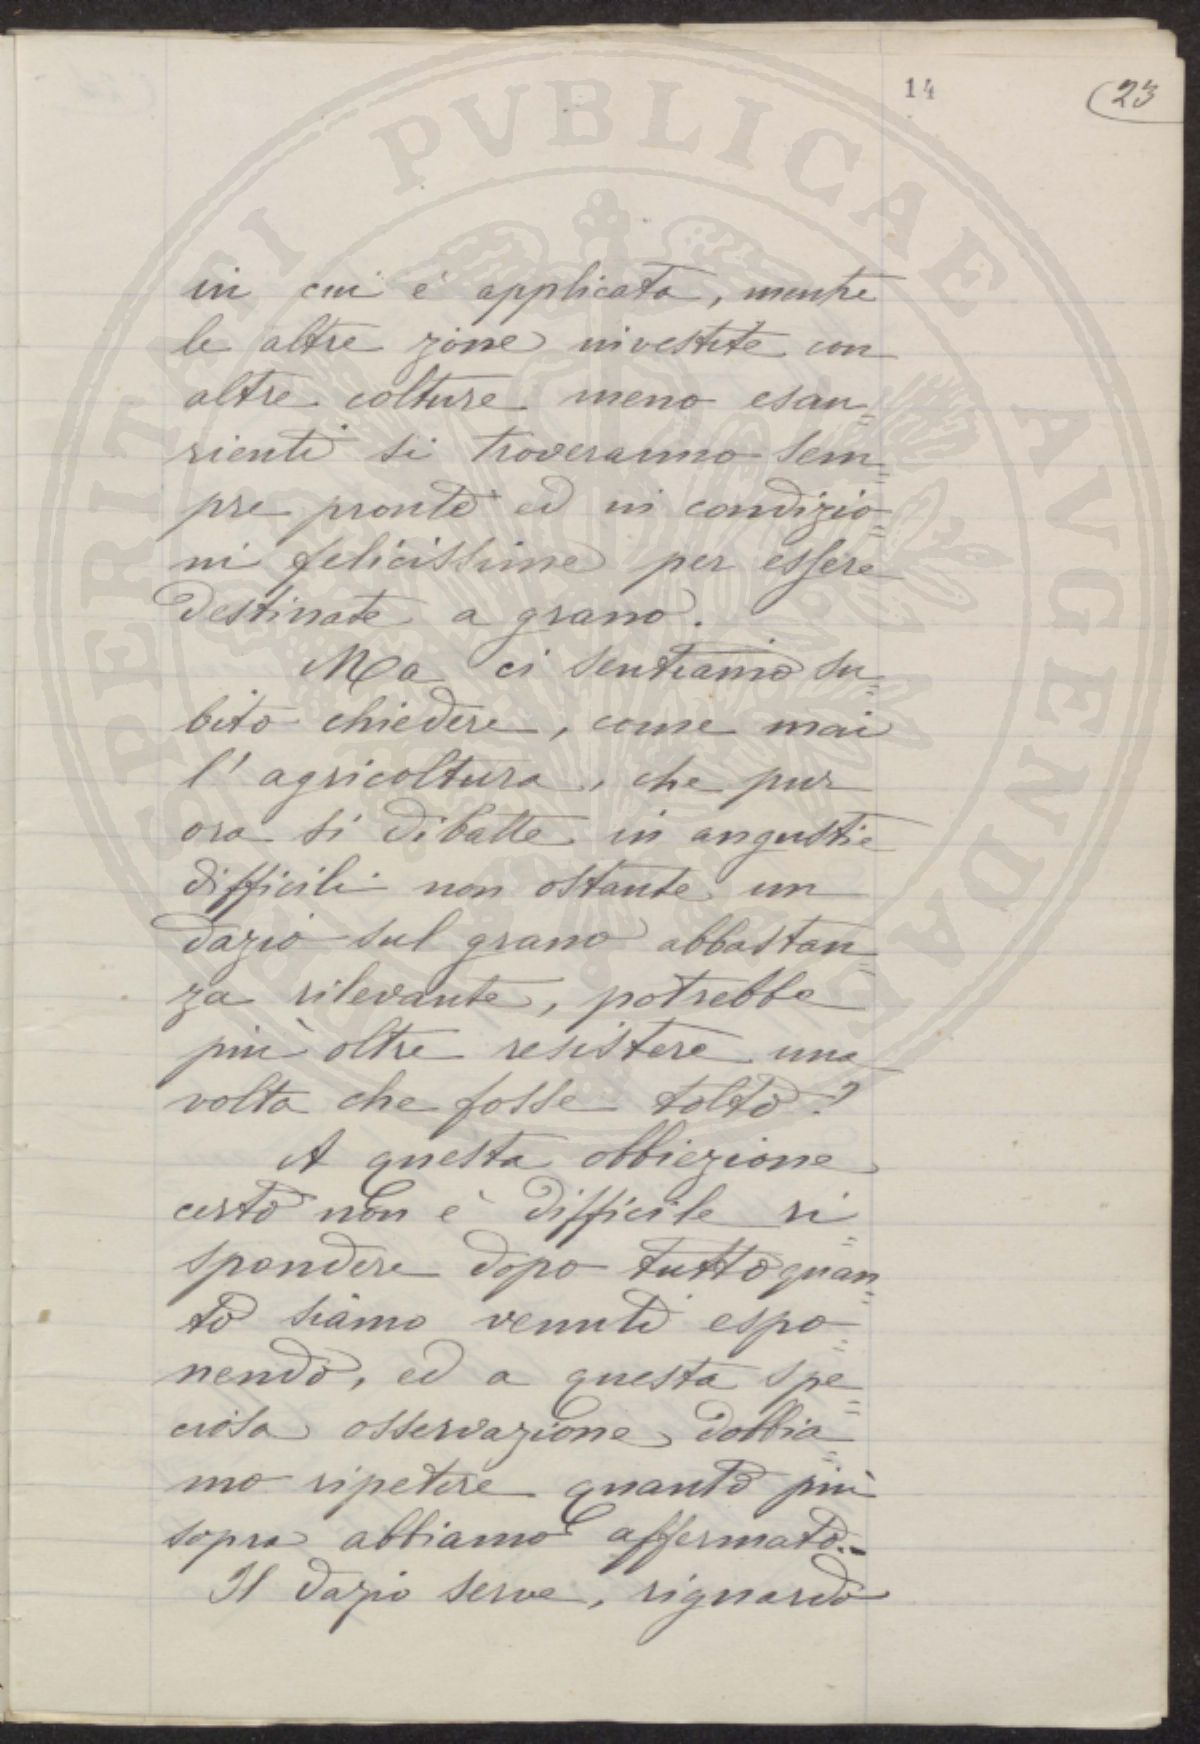 14
23
PROSPERITATI PVBLICAE AVGENDAE
in cui è applicata, mentre
le altre zone investite con
altre colture meno esau=
rienti si troveranno sem=
pre pronte ed in condizio=
ni felicissime per essere
destinate a grano.
Ma ci sentiamo su=
bito chiedere, come mai
l'agricoltura, che pur
ora si dibatte in angustie
difficili non ostante un
dazio sul grano abbastan=
za rilevante, potrebbe
più oltre resistere una
volta che fosse tolto?
A questa obbiezione
certo non è difficile ri=
spondere dopo tutto quan=
to siamo venuti espo=
nendo, ed a questa spe=
ciosa osservazione dobbia=
mo ripetere quanto più
sopra abbiamo affermato.-
Il dazio serve, riguardo